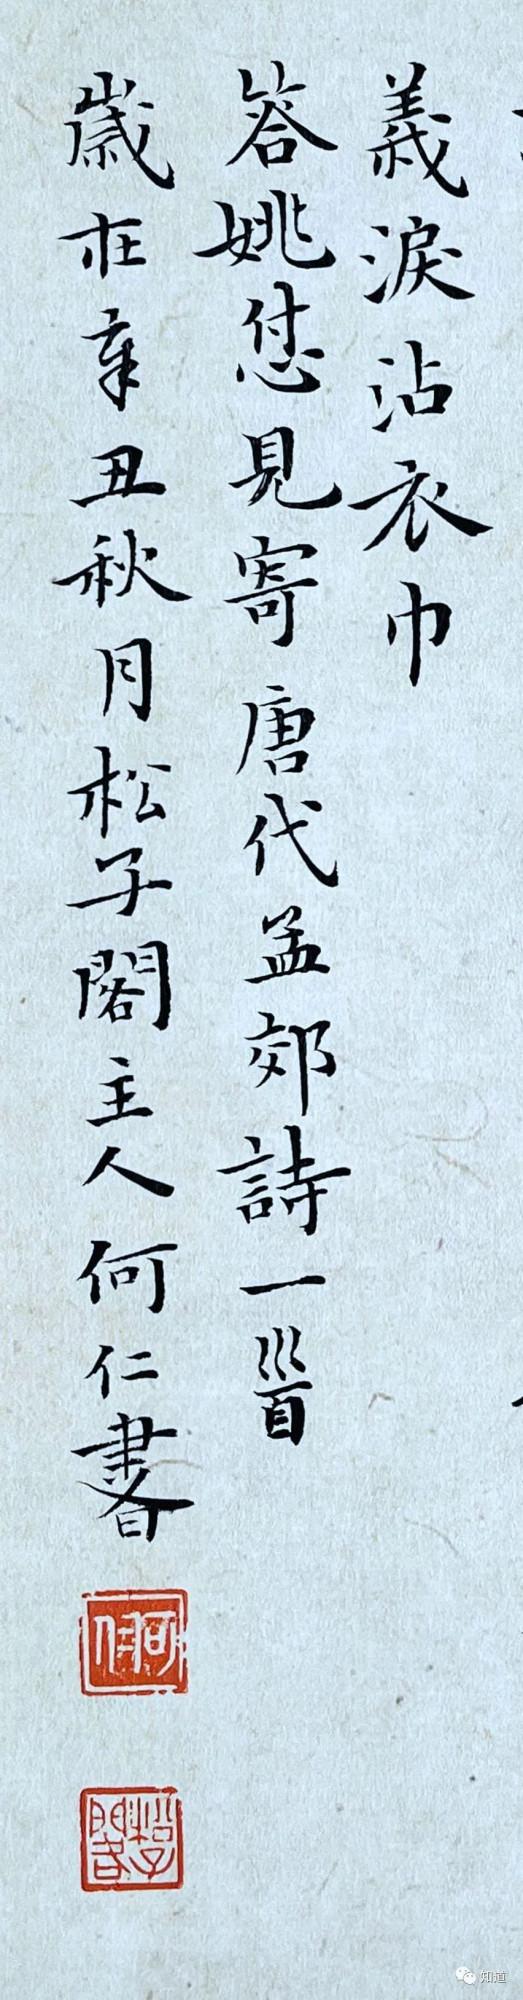 義淚沾衣巾
答姚怤見寄唐代孟郊詩一首
歲在辛丑秋月松子閣主人何仁書
何仁
松子閣
知道